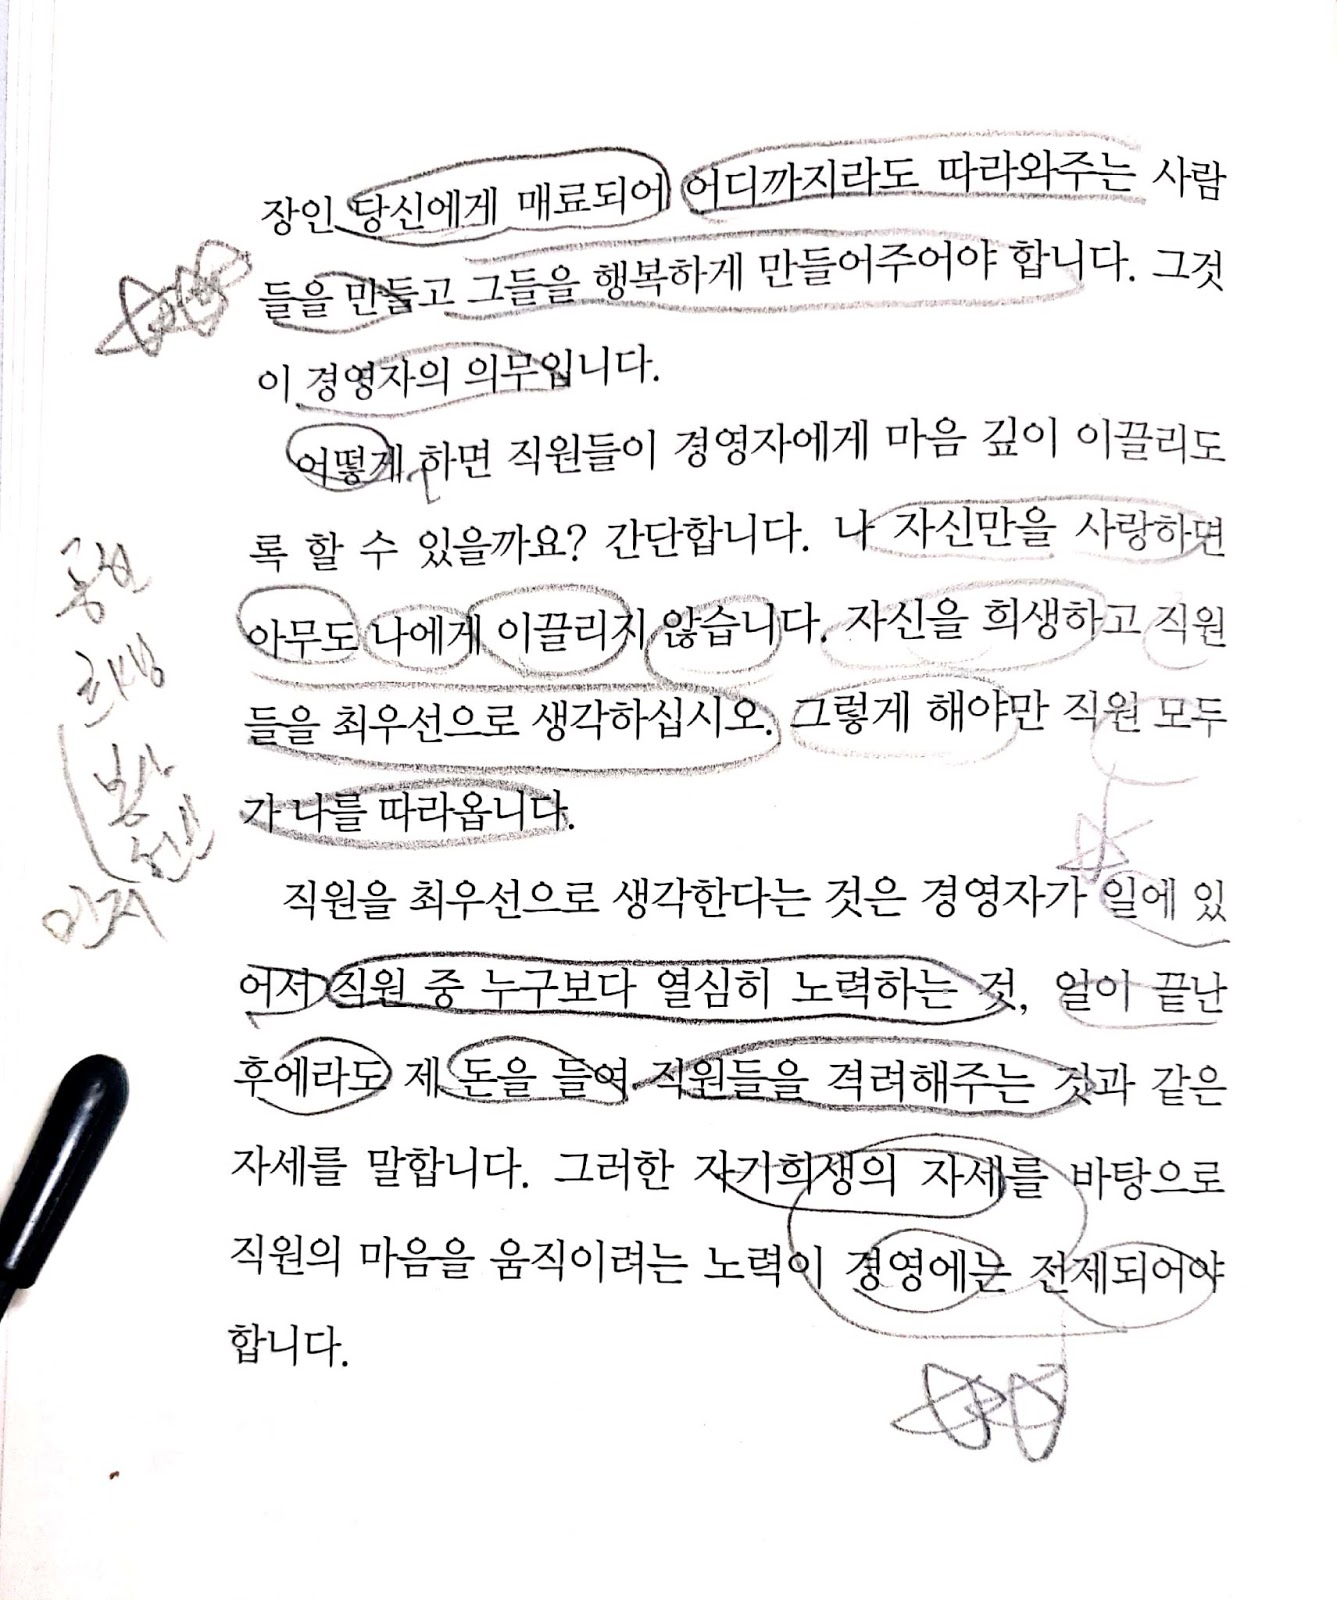 장인 당신에게 매료되어 어디까지라도 따라와주는 사람
들을 만들고 그들을 행복하게 만들어주어야 합니다. 그것
이 경영자의 의무입니다.
어떻게 하면 직원들이 경영자에게 마음 깊이 이끌리도
록 할 수 있을까요? 간단합니다. 나 자신만을 사랑하면
아무도 나에게 이끌리지 않습니다. 자신을 희생하고 직원
들을 최우선으로 생각하십시오. 그렇게 해야만 직원 모두
가 나를 따라옵니다.
직원을 최우선으로 생각한다는 것은 경영자가 일에 있
어서 직원 중 누구보다 열심히 노력하는 것, 일이 끝난
후에라도 제 돈을 들여 직원들을 격려해주는 것과 같은
자세를 말합니다. 그러한 자기희생의 자세를 바탕으로
직원의 마음을 움직이려는 노력이 경영에는 전제되어야
합니다.
희생